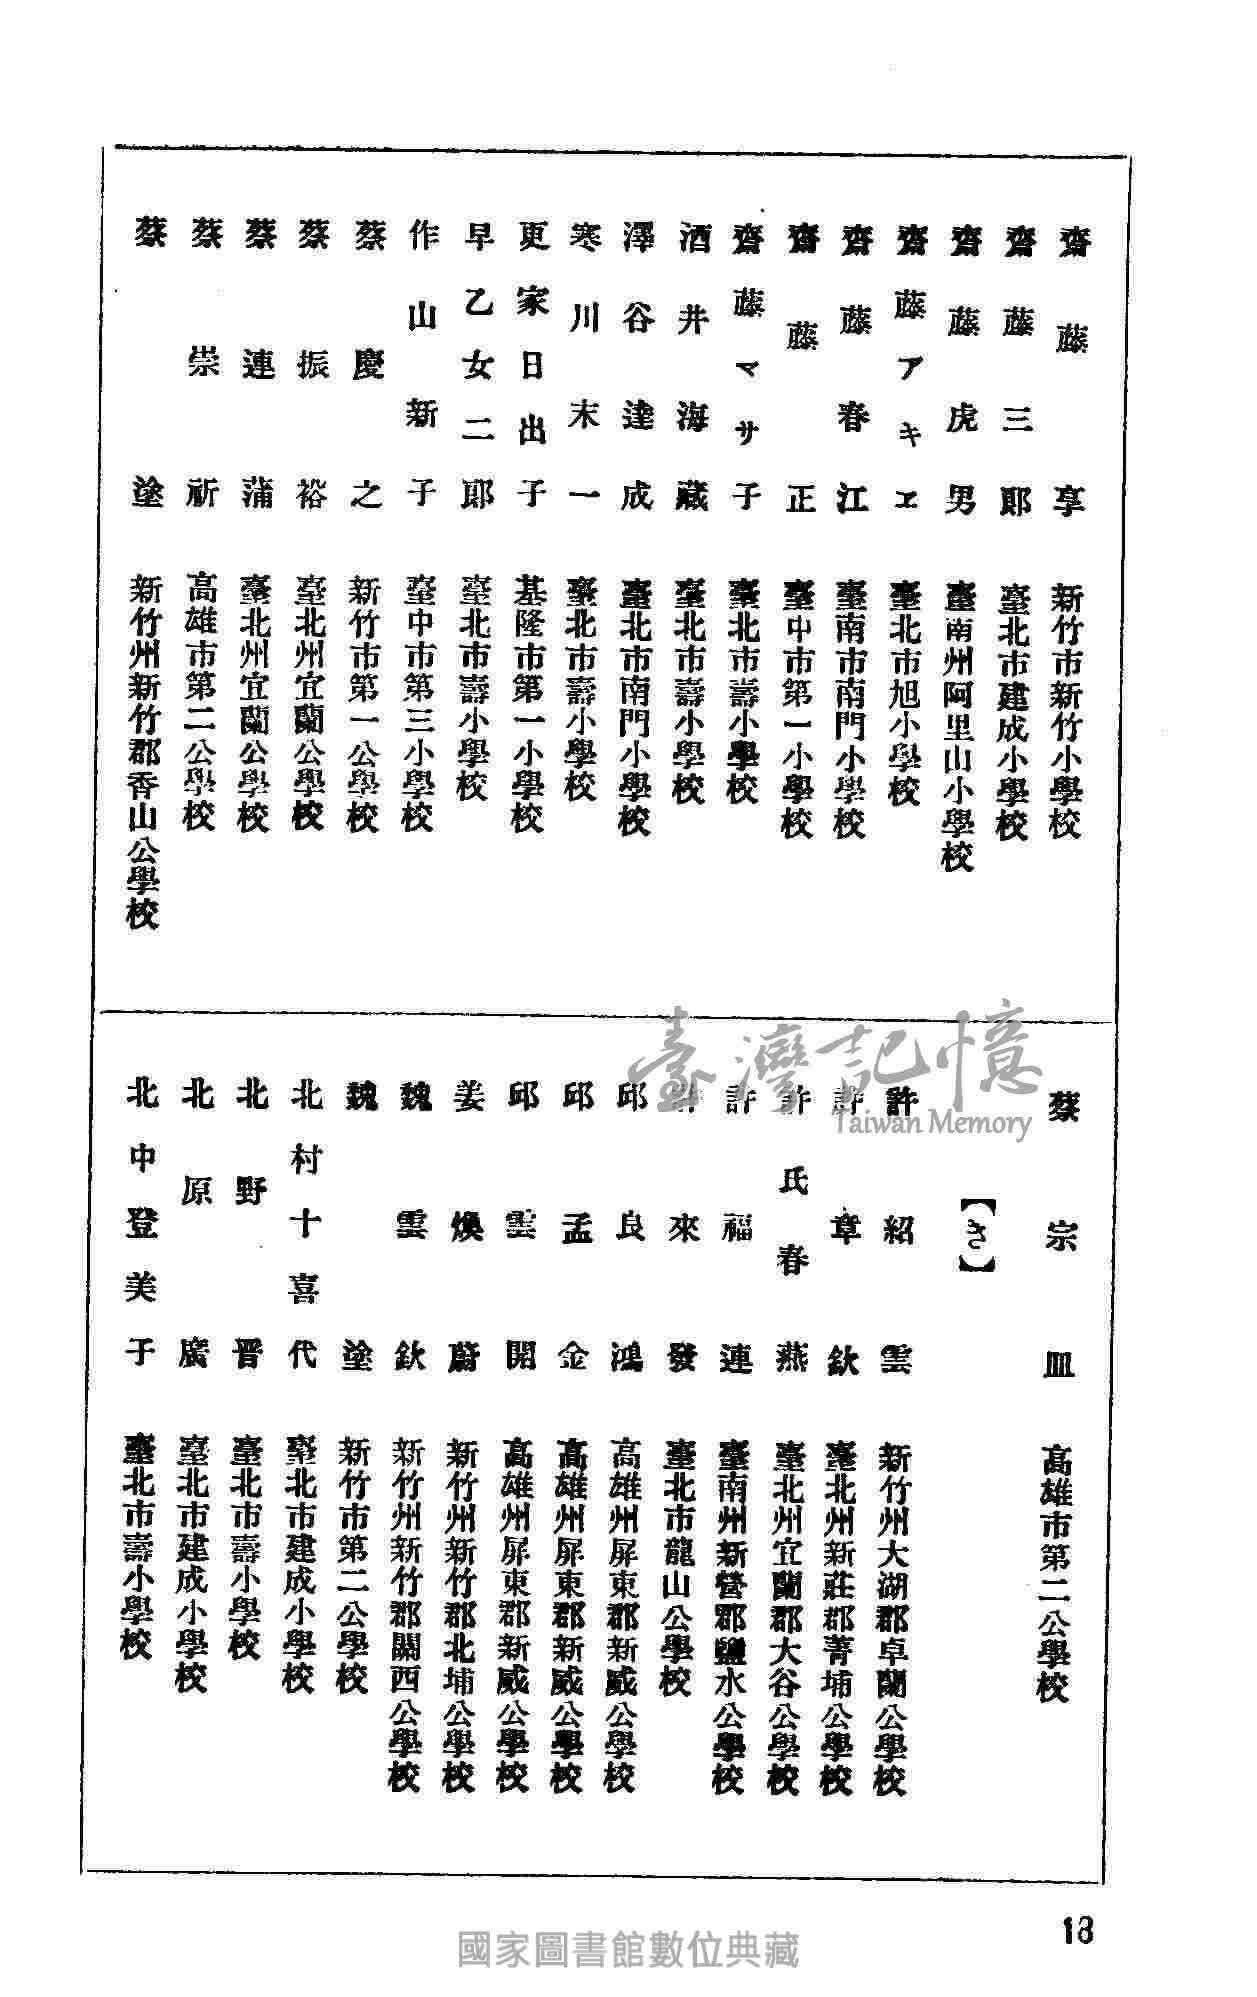 齋藤享 新竹市新竹小學校
齋藤三郎 臺北市建成小學校
齋藤虎男 臺南州阿里山小學校
齋藤アキヱ 臺北市旭小學校
齋藤春江 臺南市南門小學校
齋藤正 臺中市第一小學校
齋藤マサ子 臺北市壽小學校
酒井海藏 臺北市壽小學校
澤谷達成 臺北市南門小學校
寒川末一 臺北市壽小學校
更家日出子 基隆市第一小學校
早乙女二郎 臺北市壽小學校
作山新子 臺中市第三小學校
蔡慶之 新竹市第一公學校
蔡振裕 臺北州宜蘭公學校
蔡連蒲 臺北州宜蘭公學校
蔡崇祈 高雄市第二公學校
蔡塗 新竹州新竹郡香山公學校
蔡宗皿 高雄市第二公學校
【き】
許紹雲 新竹州大湖郡卓蘭公學校
許章欽 臺北州新莊郡菁埔公學校
許氏春燕 臺北州宜蘭郡大谷公學校
許福連 臺南州新營郡鹽水公學校
許來發 臺北市龍山公學校
邱良鴻 高雄州屏東郡新威公學校
邱孟金 高雄州屏東郡新威公學校
邱雲開 高雄州屏東郡新威公學校
姜煥蔚 新竹州新竹郡北埔公學校
魏雲欽 新竹州新竹郡關西公學校
魏塗 新竹市第二公學校
北村十喜代 臺北市建成小學校
北野晋 臺北市壽小學校
北原廣 臺北市建成小學校
北中登美子 臺北市壽小學校
臺灣記憶
Taiwan Memory
18
國家圖書館數位典藏